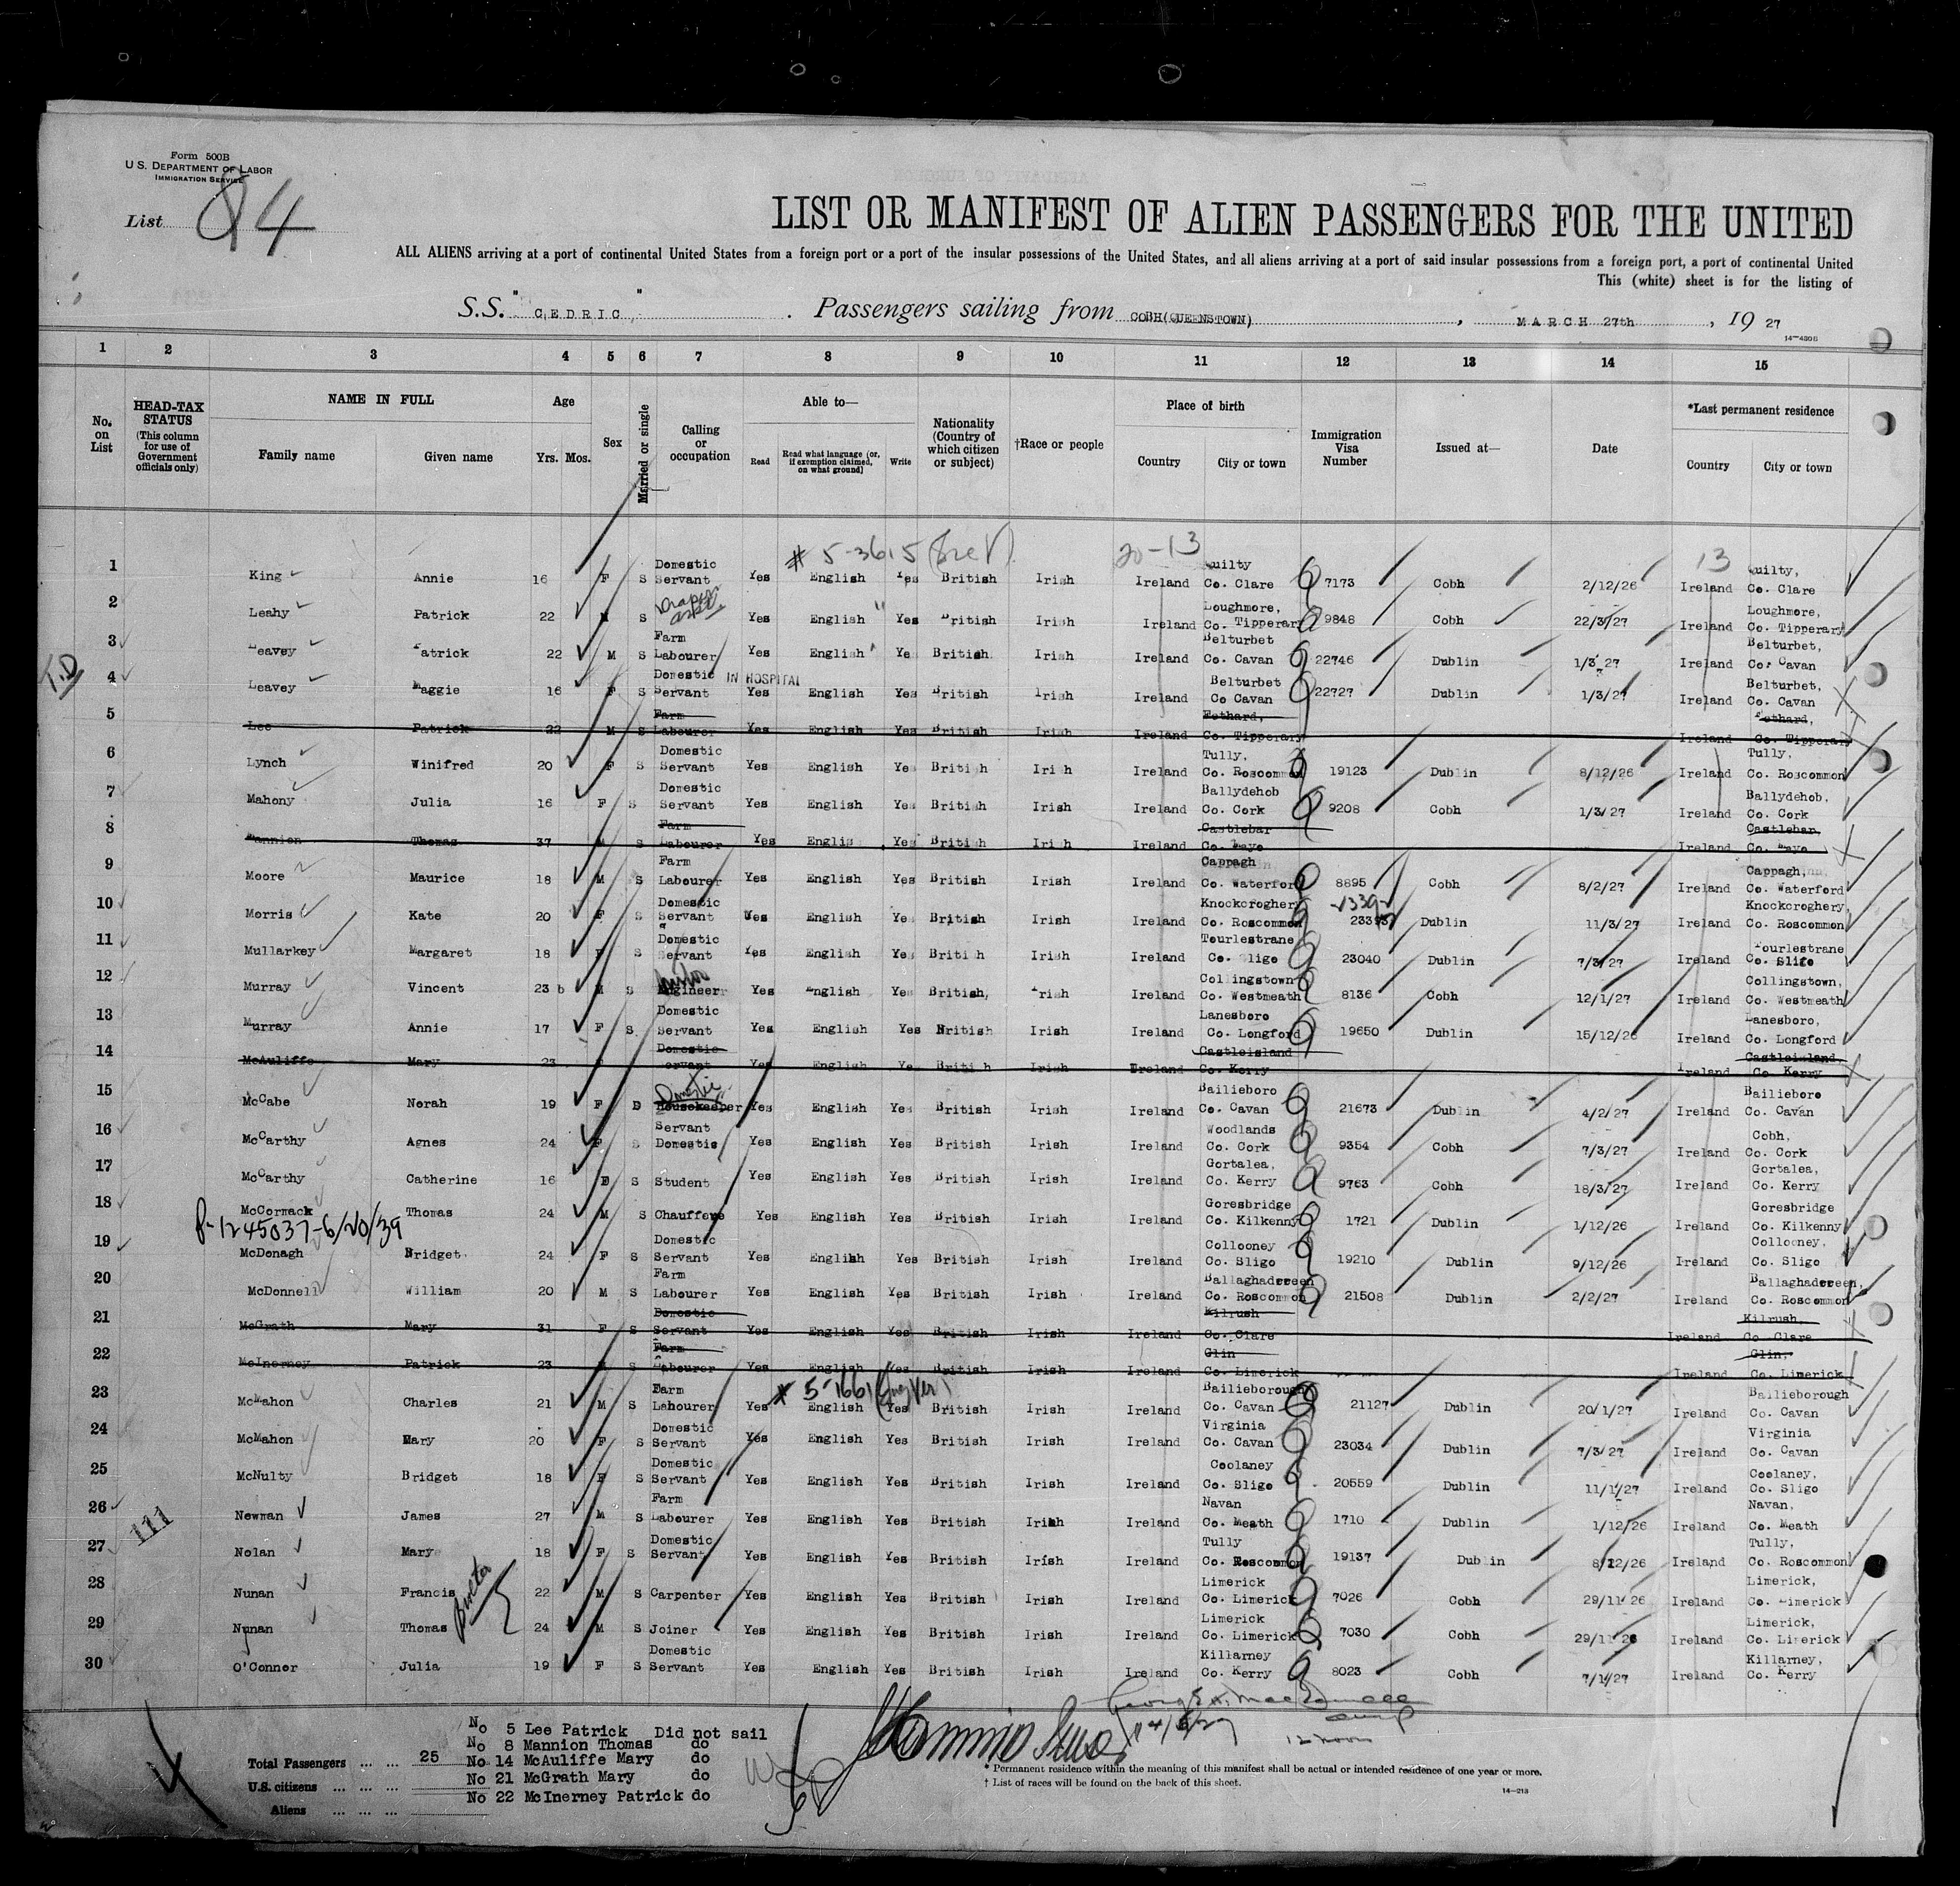 Form 500B
U.S. DEPARTMENT OF LABOR
IMMIGRATION SERVICE
List 84
LIST OR MANIFEST OF ALIEN PASSENGERS FOR THE UNITED
ALL ALIENS arriving at a port of continental United States from a foreign port or a port of the insular possessions of the United States, and all aliens arriving at a port of said insular possessions from a foreign port, a port of continental United
This (white) sheet is for the listing of
S.S. "CEDRIC" . Passengers sailing from COBH(QUEENSTOWN) , MARCH 27th , 19 27
14—4306
1 2 3 4 5 6 7 8 9 10 11 12 13 14 15
No. on List
HEAD-TAX STATUS (This column for use of Government officials only)
NAME IN FULL
Family name Given name
Age
Yrs. Mos.
Sex
Married or single
Calling or occupation
Able to—
Read
Read what language (or, if exemption claimed, on what ground)
Write
Nationality (Country of which citizen or subject)
†Race or people
Place of birth
Country City or town
Immigration Visa Number
Issued at—
Date
*Last permanent residence
Country City or town
# 5-3615 20-13 13
1 King Annie 16 F S Domestic Servant Yes English Yes British Irish Ireland Quilty Co. Clare 7173 Cobh 2/12/26 Ireland Quilty, Co. Clare
2 Leahy Patrick 22 M S Yes English Yes British Irish Ireland Loughmore, Co. Tipperary 9848 Cobh 22/3/27 Ireland Loughmore, Co. Tipperary
3 Leavey Patrick 22 M S Farm Labourer Yes English Yes British Irish Ireland Belturbet Co. Cavan 22746 Dublin 1/3/27 Ireland Belturbet, Co. Cavan
4 Leavey Maggie 16 F S Domestic Servant IN HOSPITAL Yes English Yes British Irish Ireland Belturbet Co Cavan 22727 Dublin 1/3/27 Ireland Belturbet, Co. Cavan
5 Lee Patrick 22 M S Farm Labourer Yes English Yes British Irish Ireland Fethard, Co. Tipperary Ireland Fethard, Co. Tipperary
6 Lynch Winifred 20 F S Domestic Servant Yes English Yes British Irish Ireland Tully, Co. Roscommon 19123 Dublin 8/12/26 Ireland Tully, Co. Roscommon
7 Mahony Julia 16 F S Domestic Servant Yes English Yes British Irish Ireland Ballydehob Co. Cork 9208 Cobh 1/3/27 Ireland Ballydehob, Co. Cork
8 Mannion Thomas 37 M S Farm Labourer Yes English Yes British Irish Ireland Castlebar Co. Mayo Ireland Castlebar, Co. Mayo
9 Moore Maurice 18 M S Farm Labourer Yes English Yes British Irish Ireland Cappagh Co. Waterford 8895 Cobh 8/2/27 Ireland Cappagh, Co. Waterford
10 Morris Kate 20 F S Domestic Servant Yes English Yes British Irish Ireland Knockcroghery Co. Roscommon Dublin 11/3/27 Ireland Knockcroghery, Co. Roscommon
11 Mullarkey Margaret 18 F S Domestic Servant Yes English Yes British Irish Ireland Tourlestrane Co. Sligo 23040 Dublin 7/3/27 Ireland Tourlestrane Co. Sligo
12 Murray Vincent 23 M S Engineer Yes English Yes British, Irish Ireland Collingstown Co. Westmeath 8136 Cobh 12/1/27 Ireland Collingstown, Co. Westmeath
13 Murray Annie 17 F S Domestic Servant Yes English Yes British Irish Ireland Lanesboro Co. Longford 19650 Dublin 15/12/26 Ireland Lanesboro, Co. Longford
14 McAuliffe Mary 23 F Domestic Servant Yes English Yes British Irish Ireland Castleisland Co. Kerry Ireland Castleisland Co. Kerry
15 McCabe Norah 19 F S Domestic Housekeeper Yes English Yes British Irish Ireland Bailieboro Co. Cavan 21673 Dublin 4/2/27 Ireland Bailieboro Co. Cavan
16 McCarthy Agnes 24 F S Servant Domestic Yes English Yes British Irish Ireland Woodlands Co. Cork 9354 Cobh 7/3/27 Ireland Cobh, Co. Cork
17 McCarthy Catherine 16 F S Student Yes English Yes British Irish Ireland Gortalea, Co. Kerry 9763 Cobh 18/3/27 Ireland Gortalea, Co. Kerry
18 McCormack Thomas 24 M S Chauffeur Yes English Yes British Irish Ireland Goresbridge Co. Kilkenny 1721 Dublin 1/12/26 Ireland Goresbridge Co. Kilkenny
P-1245037-6/20/39
19 McDonagh Bridget 24 F S Domestic Servant Yes English Yes British Irish Ireland Collooney Co. Sligo 19210 Dublin 9/12/26 Ireland Collooney, Co. Sligo
20 McDonnell William 20 M S Farm Labourer Yes English Yes British Irish Ireland Ballaghadereen Co. Roscommon 21508 Dublin 2/2/27 Ireland Ballaghadereen, Co. Roscommon
21 McGrath Mary 31 F S Domestic Servant Yes English Yes British Irish Ireland Kilrush Co. Clare Ireland Kilrush, Co Clare
22 McInerney Patrick 23 M S Farm Labourer Yes English Yes British Irish Ireland Glin Co. Limerick Ireland Glin, Co. Limerick
# 5-1661
23 McMahon Charles 21 M S Farm Labourer Yes English Yes British Irish Ireland Bailieborough Co. Cavan 21127 Dublin 20/1/27 Ireland Bailieborough Co. Cavan
24 McMahon Mary 20 F S Domestic Servant Yes English Yes British Irish Ireland Virginia Co. Cavan 23034 Dublin 7/3/27 Ireland Virginia Co. Cavan
25 McNulty Bridget 18 F S Domestic Servant Yes English Yes British Irish Ireland Coolaney Co. Sligo 20559 Dublin 11/1/27 Ireland Coolaney, Co. Sligo
26 Newman James 27 M S Farm Labourer Yes English Yes British Irish Ireland Navan Co. Meath 1710 Dublin 1/12/26 Ireland Navan, Co. Meath
27 Nolan Mary 18 F S Domestic Servant Yes English Yes British Irish Ireland Tully Co. Roscommon 19137 Dublin 8/12/26 Ireland Tully, Co. Roscommon
28 Nunan Francis 22 M S Carpenter Yes English Yes British Irish Ireland Limerick Co. Limerick 7026 Cobh 29/11/26 Ireland Limerick, Co. Limerick
29 Nunan Thomas 24 M S Joiner Yes English Yes British Irish Ireland Limerick Co. Limerick 7030 Cobh 29/11/26 Ireland Limerick, Co. Limerick
30 O'Connor Julia 19 F S Domestic Servant Yes English Yes British Irish Ireland Killarney Co. Kerry 8023 Cobh 7/1/27 Ireland Killarney, Co. Kerry
Total Passengers ... ... 25
U.S. citizens ... ... ...
Aliens ... ... ...
No 5 Lee Patrick Did not sail
No 8 Mannion Thomas do
No 14 McAuliffe Mary do
No 21 McGrath Mary do
No 22 McInerney Patrick do
* Permanent residence within the meaning of this manifest shall be actual or intended residence of one year or more.
† List of races will be found on the back of this sheet.
14—213